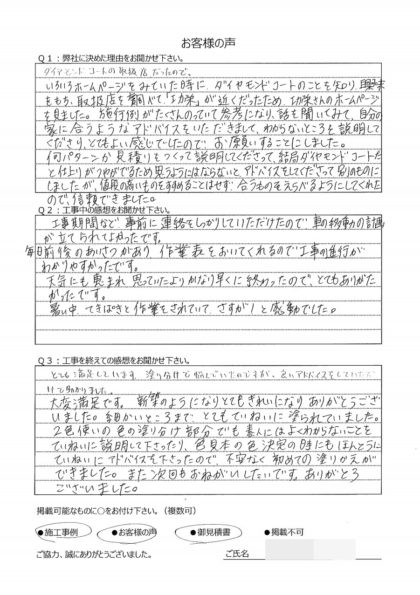 お客様の声
Q１：弊社に決めた理由をお聞かせ下さい。
ダイヤモンドコートの取扱店だったので。
いろいろホームページをみていた時に、ダイヤモンドコートのことを知り、興味
をもち、取扱店を調べて「功栄」が近くだったため、功栄さんのホームページ
を見ました。施行例がたくさんのっていて参考になり、話を聞いてみて、自分の
家に合うようなアドバイスをいただきまして、わからないところも説明して
くださり、とてもよい感じでしたので、お願いすることにしました。
何パターンか見積りもつくって説明してくださって、結局ダイヤモンドコートだ
と仕上がりつやがでるため思うようにはならないと、アドバイスをしてくださって別のものに
しましたが、値段の高いものをすすめることはせず、合うものをえらべるようにしてくれた
ので、信頼できました。
Q２：工事中の感想をお聞かせ下さい。
工事期間など、事前に連絡をしっかりしていただけたので、車の移動の計画
が立てられてよかったです。
毎日前後のあいさつがあり、作業表をおいてくれるので工事の進行が
わかりやすかったです。
天気にも恵まれ、思っていたよりかなり早くに終わったので、とてもありがた
かったです。
暑い中、てきぱきと作業をされていて、さすが!と感動でした。
Q３：工事を終えての感想をお聞かせ下さい。
とても満足しています。塗り分けで悩んでいたのですが、色々アドバイスをしていただ
けて助かりました。
大変満足です。新築のようになりとてもきれいになりありがとうござ
いました。細かいところまで、とてもていねいに塗られていました。
2色使いの色の塗り分け部分でも素人にはよくわからないことを
ていねいに説明して下さったり、色見本の色決定の時にもほんとうに
ていねいにアドバイスを下さったので、不安なく初めての塗りかえが
できました。また次回もおねがいしたいです。ありがとう
ございました。
掲載可能なものに○をお付け下さい。（複数可）
●施工事例 ●お客様の声 ●御見積書 ●掲載不可
ご協力、誠にありがとうございました。 ご氏名